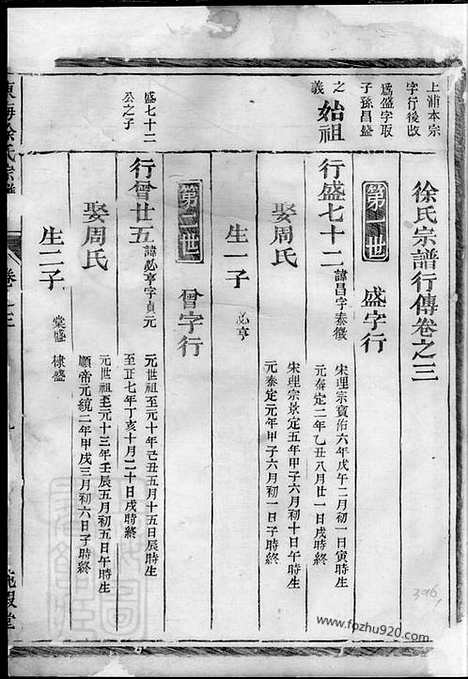 徐氏宗譜行傳卷之三
上浦本宗
字行後改
爲盛字取
子孫昌盛
之
義
始祖
第一世
盛字行
行盛七十二
諱昌字泰徵
宋理宗寶祐六年戊午二月初一日寅時生
元泰定二年乙丑八月廿一日戌時終
娶周氏
宋理宗景定五年甲子六月初十日午時生
元泰定元年甲子六月初一日子時終
生一子
必亨
第二世
曾字行
盛七十二
公之子
行曾廿五
諱必亨字貞元
元世祖至元十年己丑五月十五日辰時生
至正七年丁亥十月二十日戌時終
娶周氏
元世祖至元十三年壬辰五月初五日午時生
順帝元統二年甲戌三月初六日子時終
生二子
棠盛
棣盛
東海徐氏宗譜
卷之三
396
www.fozhu920.com